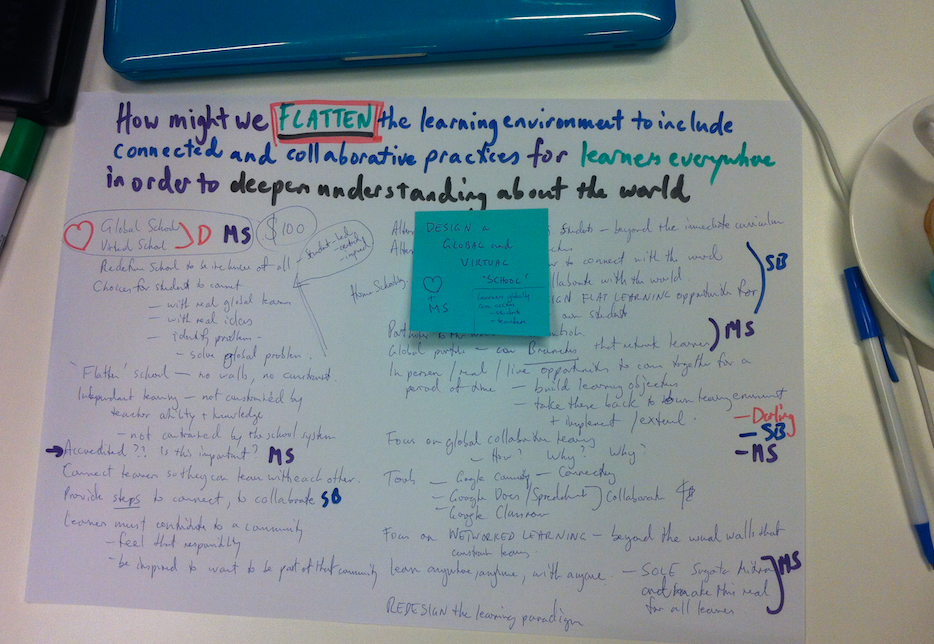 How might we FLATTEN the learning environment to include
connected and collaborative practices for learners everywhere
in order to deepen understanding about the world
Global School
Virtual School
D MS
$100
Redefine School to be inclusive of all
- student-led
Choices for student to connect
- with real global learners
- with real ideas
- identify problem
- solve global problem.
'Flatten' school - no walls, no constraint.
Independent learning - not constrained by
teacher ability + knowledge
- not constrained by the school system
Accredited?? Is this important? MS
Connect learners so they can learn with each other.
Provide steps to connect, to collaborate SB
Learner must contribute to a community
- feel that responsibility
- be inspired to want to be part of that community
DESIGN a
GLOBAL and
VIRTUAL
'SCHOOL'
+
MS
Learners globally
can access
- students
- teachers
students - beyond the immediate curriculum
to connect with the world
collaborate with the world
SB
Home Schooling
FLAT LEARNING opportunities for
own students
MS
Global profile - can
that network learners
In person/real/live opportunities to come together for a
period of time - build learning objectives
- take these back to own learning environment
+ implement/extend.
- Darling
- SB
- MS
Focus on global collaborative learning
- How? Why? Why?
Tools - Google Community - Connecting
- Google Docs/Spreadsheet
Collaborate
- Google Classroom
Focus on NETWORKED LEARNING - beyond the usual walls that
constrain learning
learn anywhere, anytime, with anyone - SOLE Sugata Mitra
and make this real
for all learners
MS
REDESIGN the learning paradigm